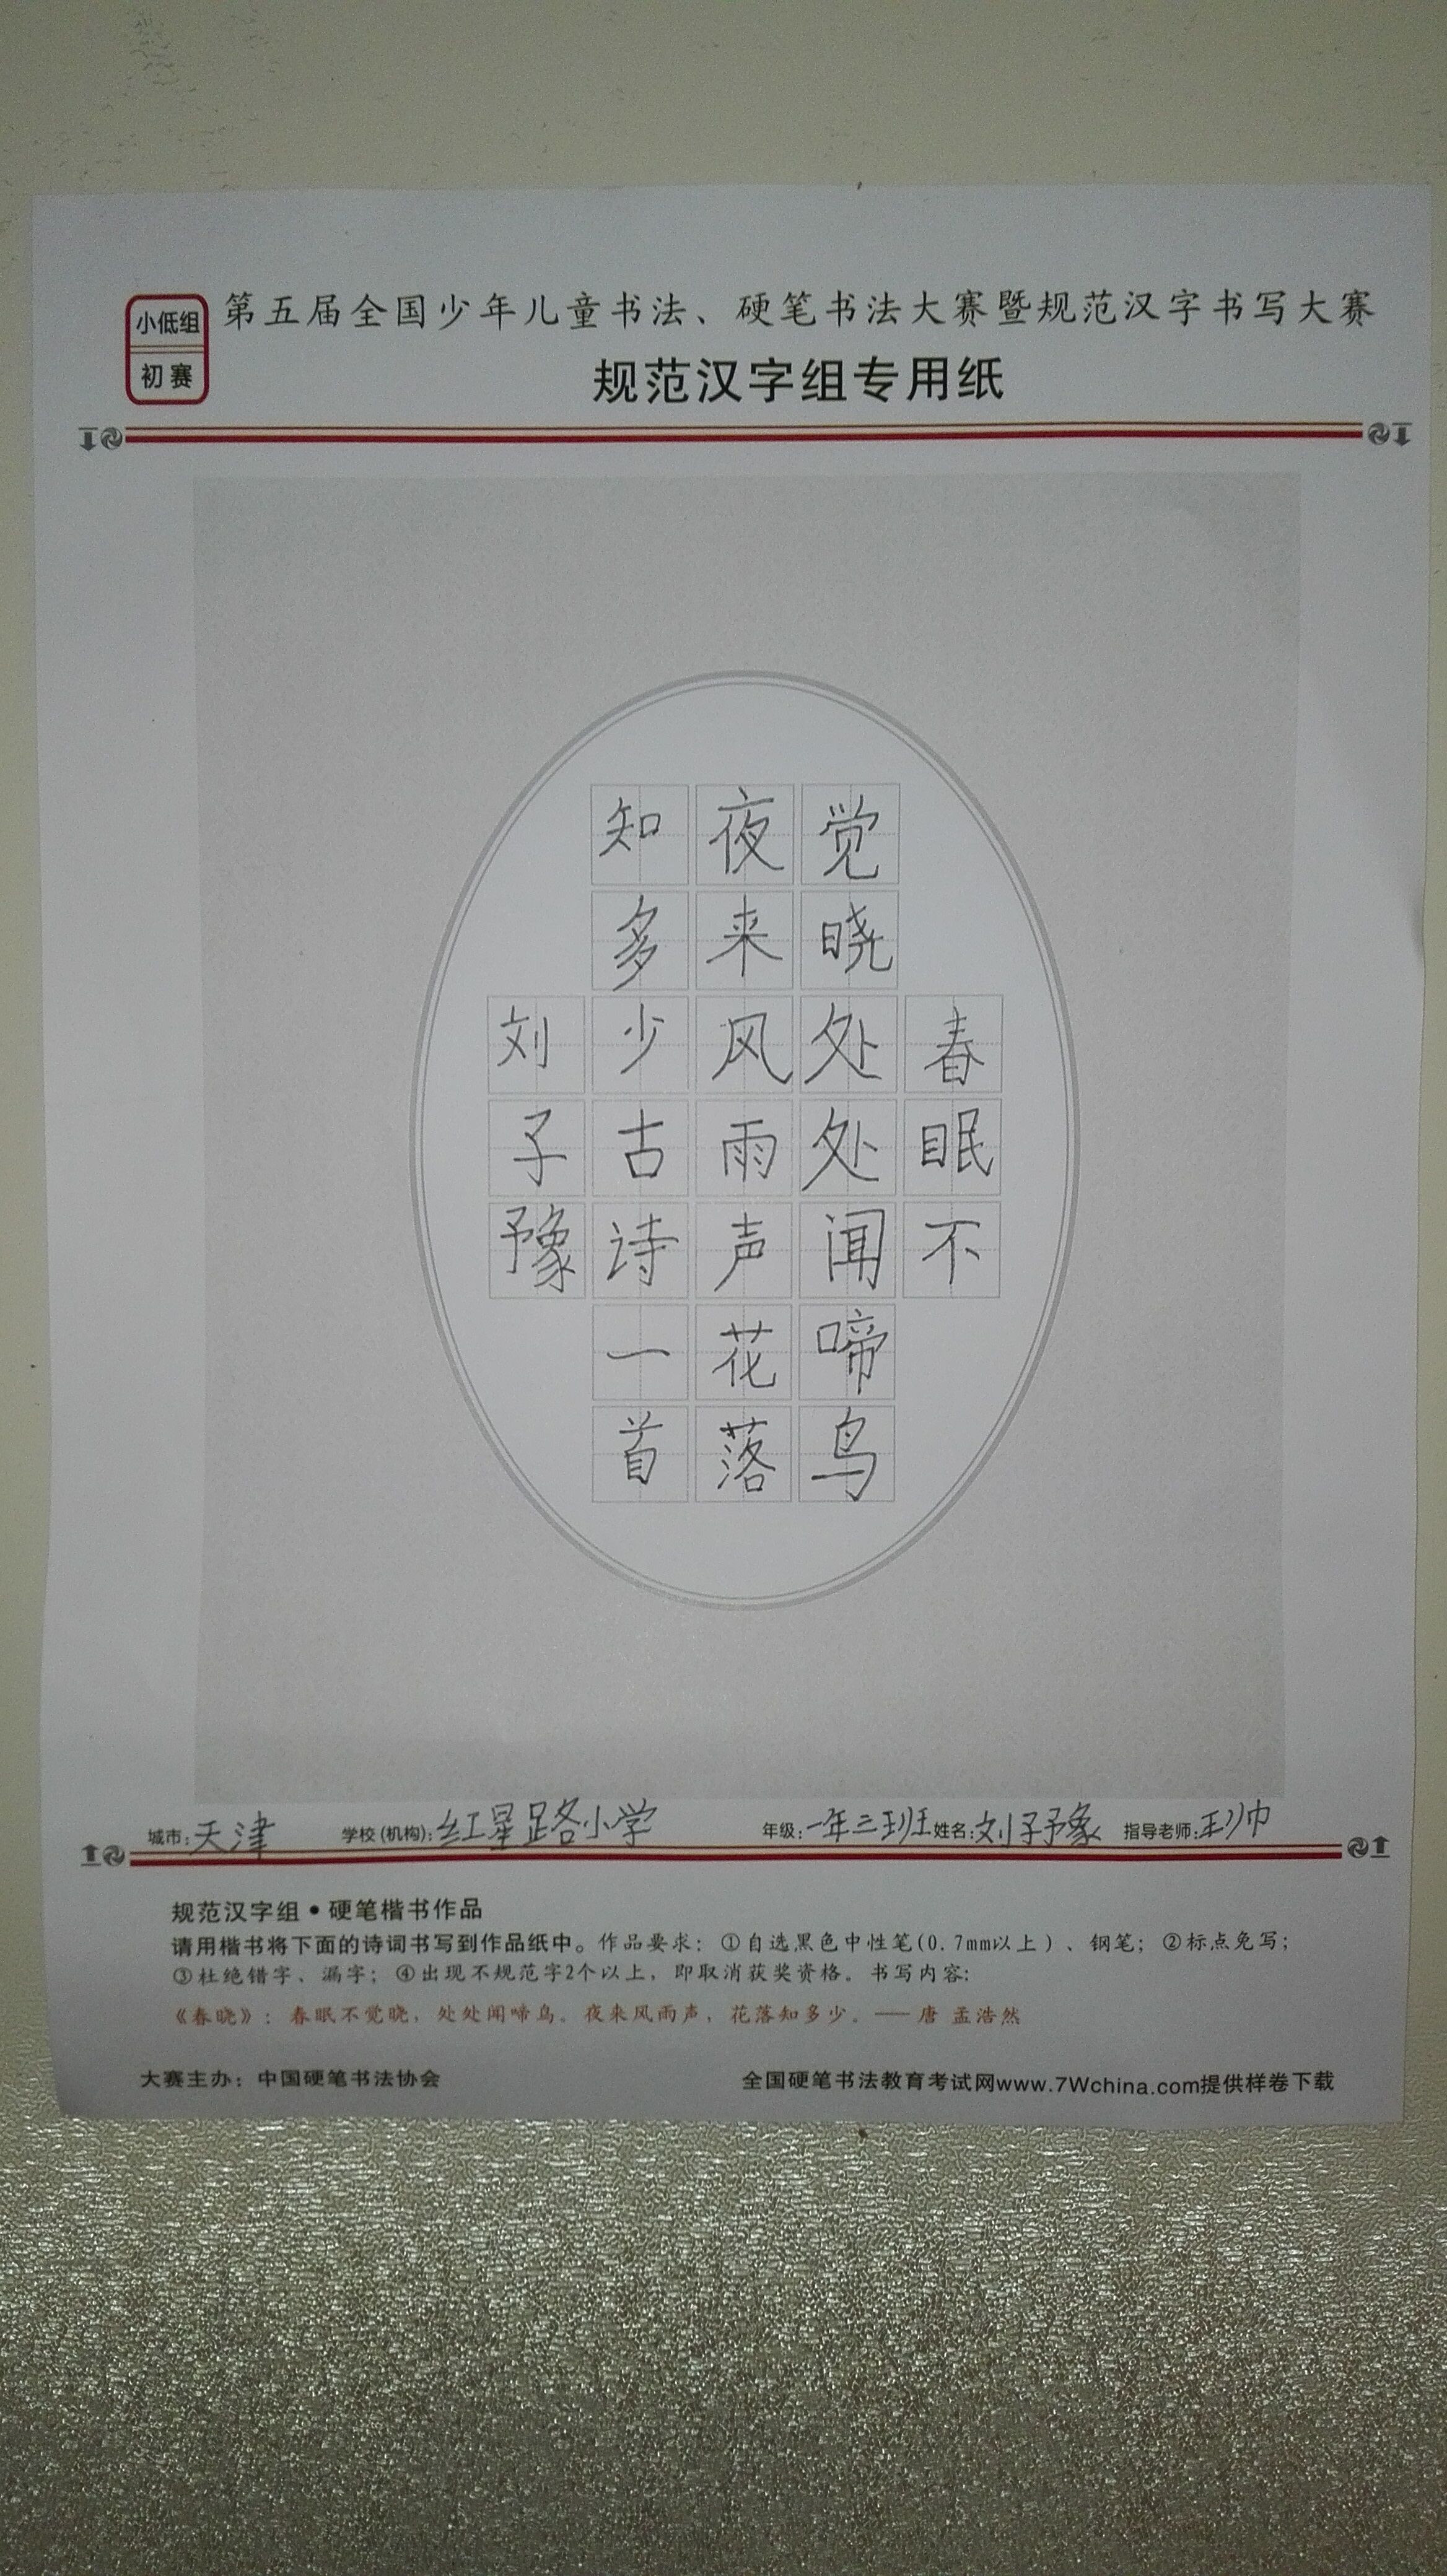 小低组
初赛
第五届全国少年儿童书法、硬笔书法大赛暨规范汉字书写大赛
规范汉字组专用纸
春眠不
觉晓处处闻啼鸟
夜来风雨声花落
知多少古诗一首
刘子豫
城市:天津 学校(机构):红星路小学 年级:一年三班 姓名:刘子豫 指导老师:王帅
规范汉字组•硬笔楷书作品
请用楷书将下面的诗词书写到作品纸中。作品要求:①自选黑色中性笔(0.7mm以上)、钢笔;②标点免写;
③杜绝错字、漏字;④出现不规范字2个以上,即取消获奖资格。书写内容:
《春晓》:春眠不觉晓,处处闻啼鸟。夜来风雨声,花落知多少。——唐 孟浩然
大赛主办:中国硬笔书法协会 全国硬笔书法教育考试网www.7Wchina.com提供样卷下载